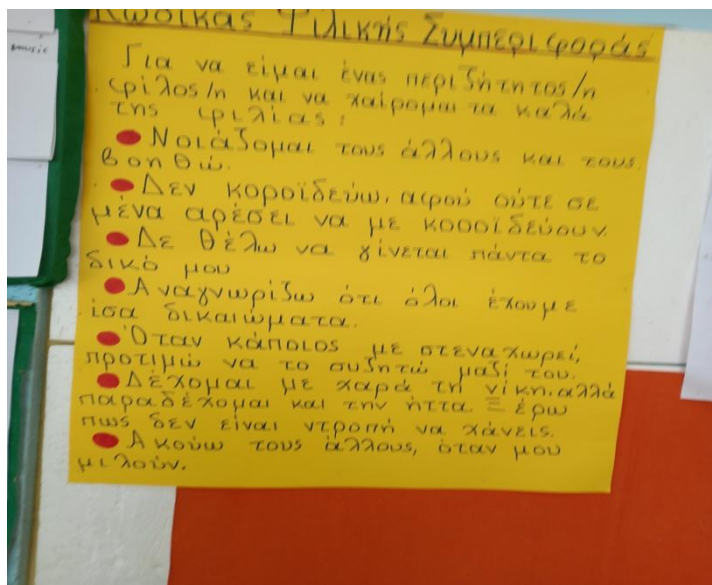 Κώδικας Φιλικής Συμπεριφοράς
Για να είμαι ένας περιζήτητος/η
φίλος/η και να χαίρομαι τα καλά
της φιλίας:
● Νοιάζομαι τους άλλους και τους
βοηθώ.
● Δεν κοροϊδεύω, αφού ούτε σε
μένα αρέσει να με κοροϊδεύουν.
● Δε θέλω να γίνεται πάντα το
δικό μου
● Αναγνωρίζω ότι όλοι έχουμε
ίσα δικαιώματα.
● Όταν κάποιος με στεναχωρεί,
προτιμώ να το συζητώ μαζί του.
● Δέχομαι με χαρά τη νίκη, αλλά
παραδέχομαι και την ήττα. Ξέρω
πως δεν είναι ντροπή να χάνεις.
● Ακούω τους άλλους, όταν μου
μιλούν.